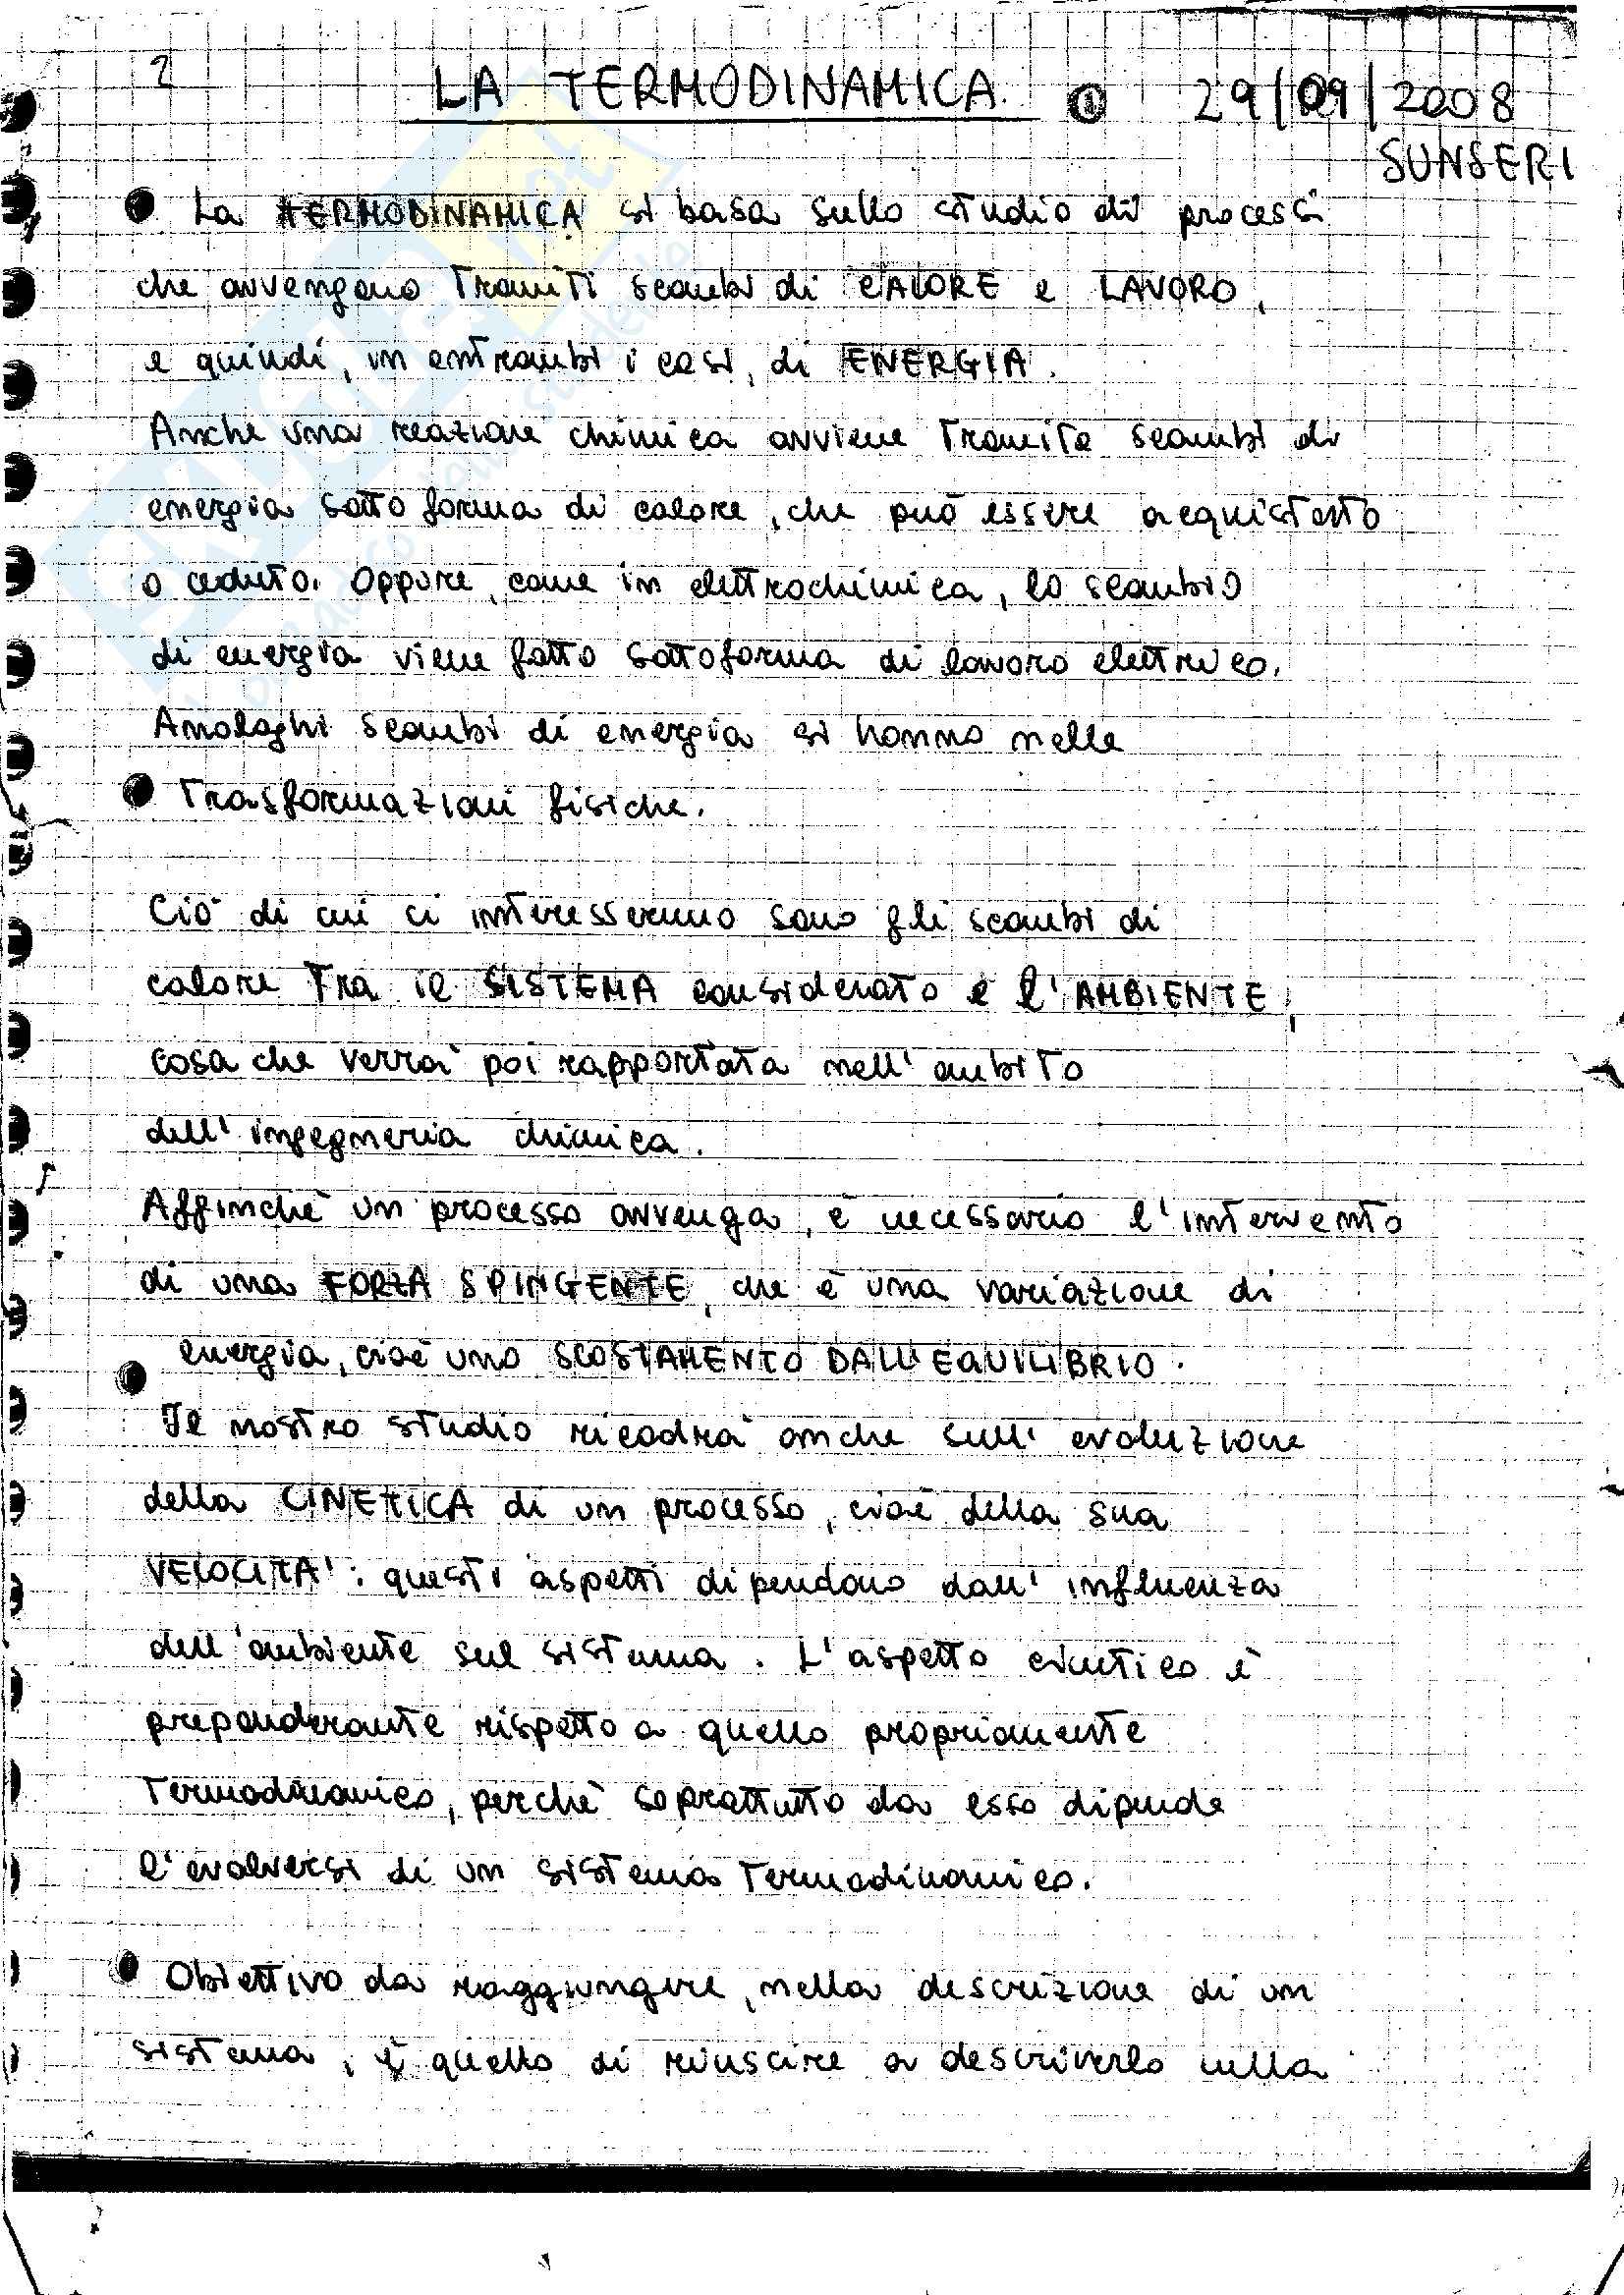 2 LA TERMODINAMICA ① 29/09/2008
SUNSERI
● La TERMODINAMICA si basa sullo studio di processi
che avvengono tramiti scambi di CALORE e LAVORO,
e quindi, in entrambi i casi, di ENERGIA.
Anche una reazione chimica avviene tramite scambi di
energia sotto forma di calore, che può essere acquistato
o ceduto. Oppure, come in elettrochimica, lo scambio
di energia viene fatto sottoforma di lavoro elettrico.
Analoghi scambi di energia si hanno nelle
● Trasformazioni fisiche.
Ciò di cui ci interesseremo sono gli scambi di
calore tra il SISTEMA considerato e l'AMBIENTE,
cosa che verrà poi rapportata nell'ambito
dell'ingegneria chimica.
Affinchè un processo avvenga, è necessario l'intervento
di una FORZA SPINGENTE, che è una variazione di
energia, cioè uno SCOSTAMENTO DALL'EQUILIBRIO.
● Il nostro studio ricadrà anche sull'evoluzione
della CINETICA di un processo, cioè della sua
VELOCITA': questi aspetti dipendono dall'influenza
dell'ambiente sul sistema. L'aspetto cinetico è
preponderante rispetto a quello propriamente
Termodinamico, perchè soprattutto da esso dipende
l'evolversi di un sistema Termodinamico.
● Obiettivo da raggiungere, nella descrizione di un
sistema, è quello di riuscire a descriverlo nella